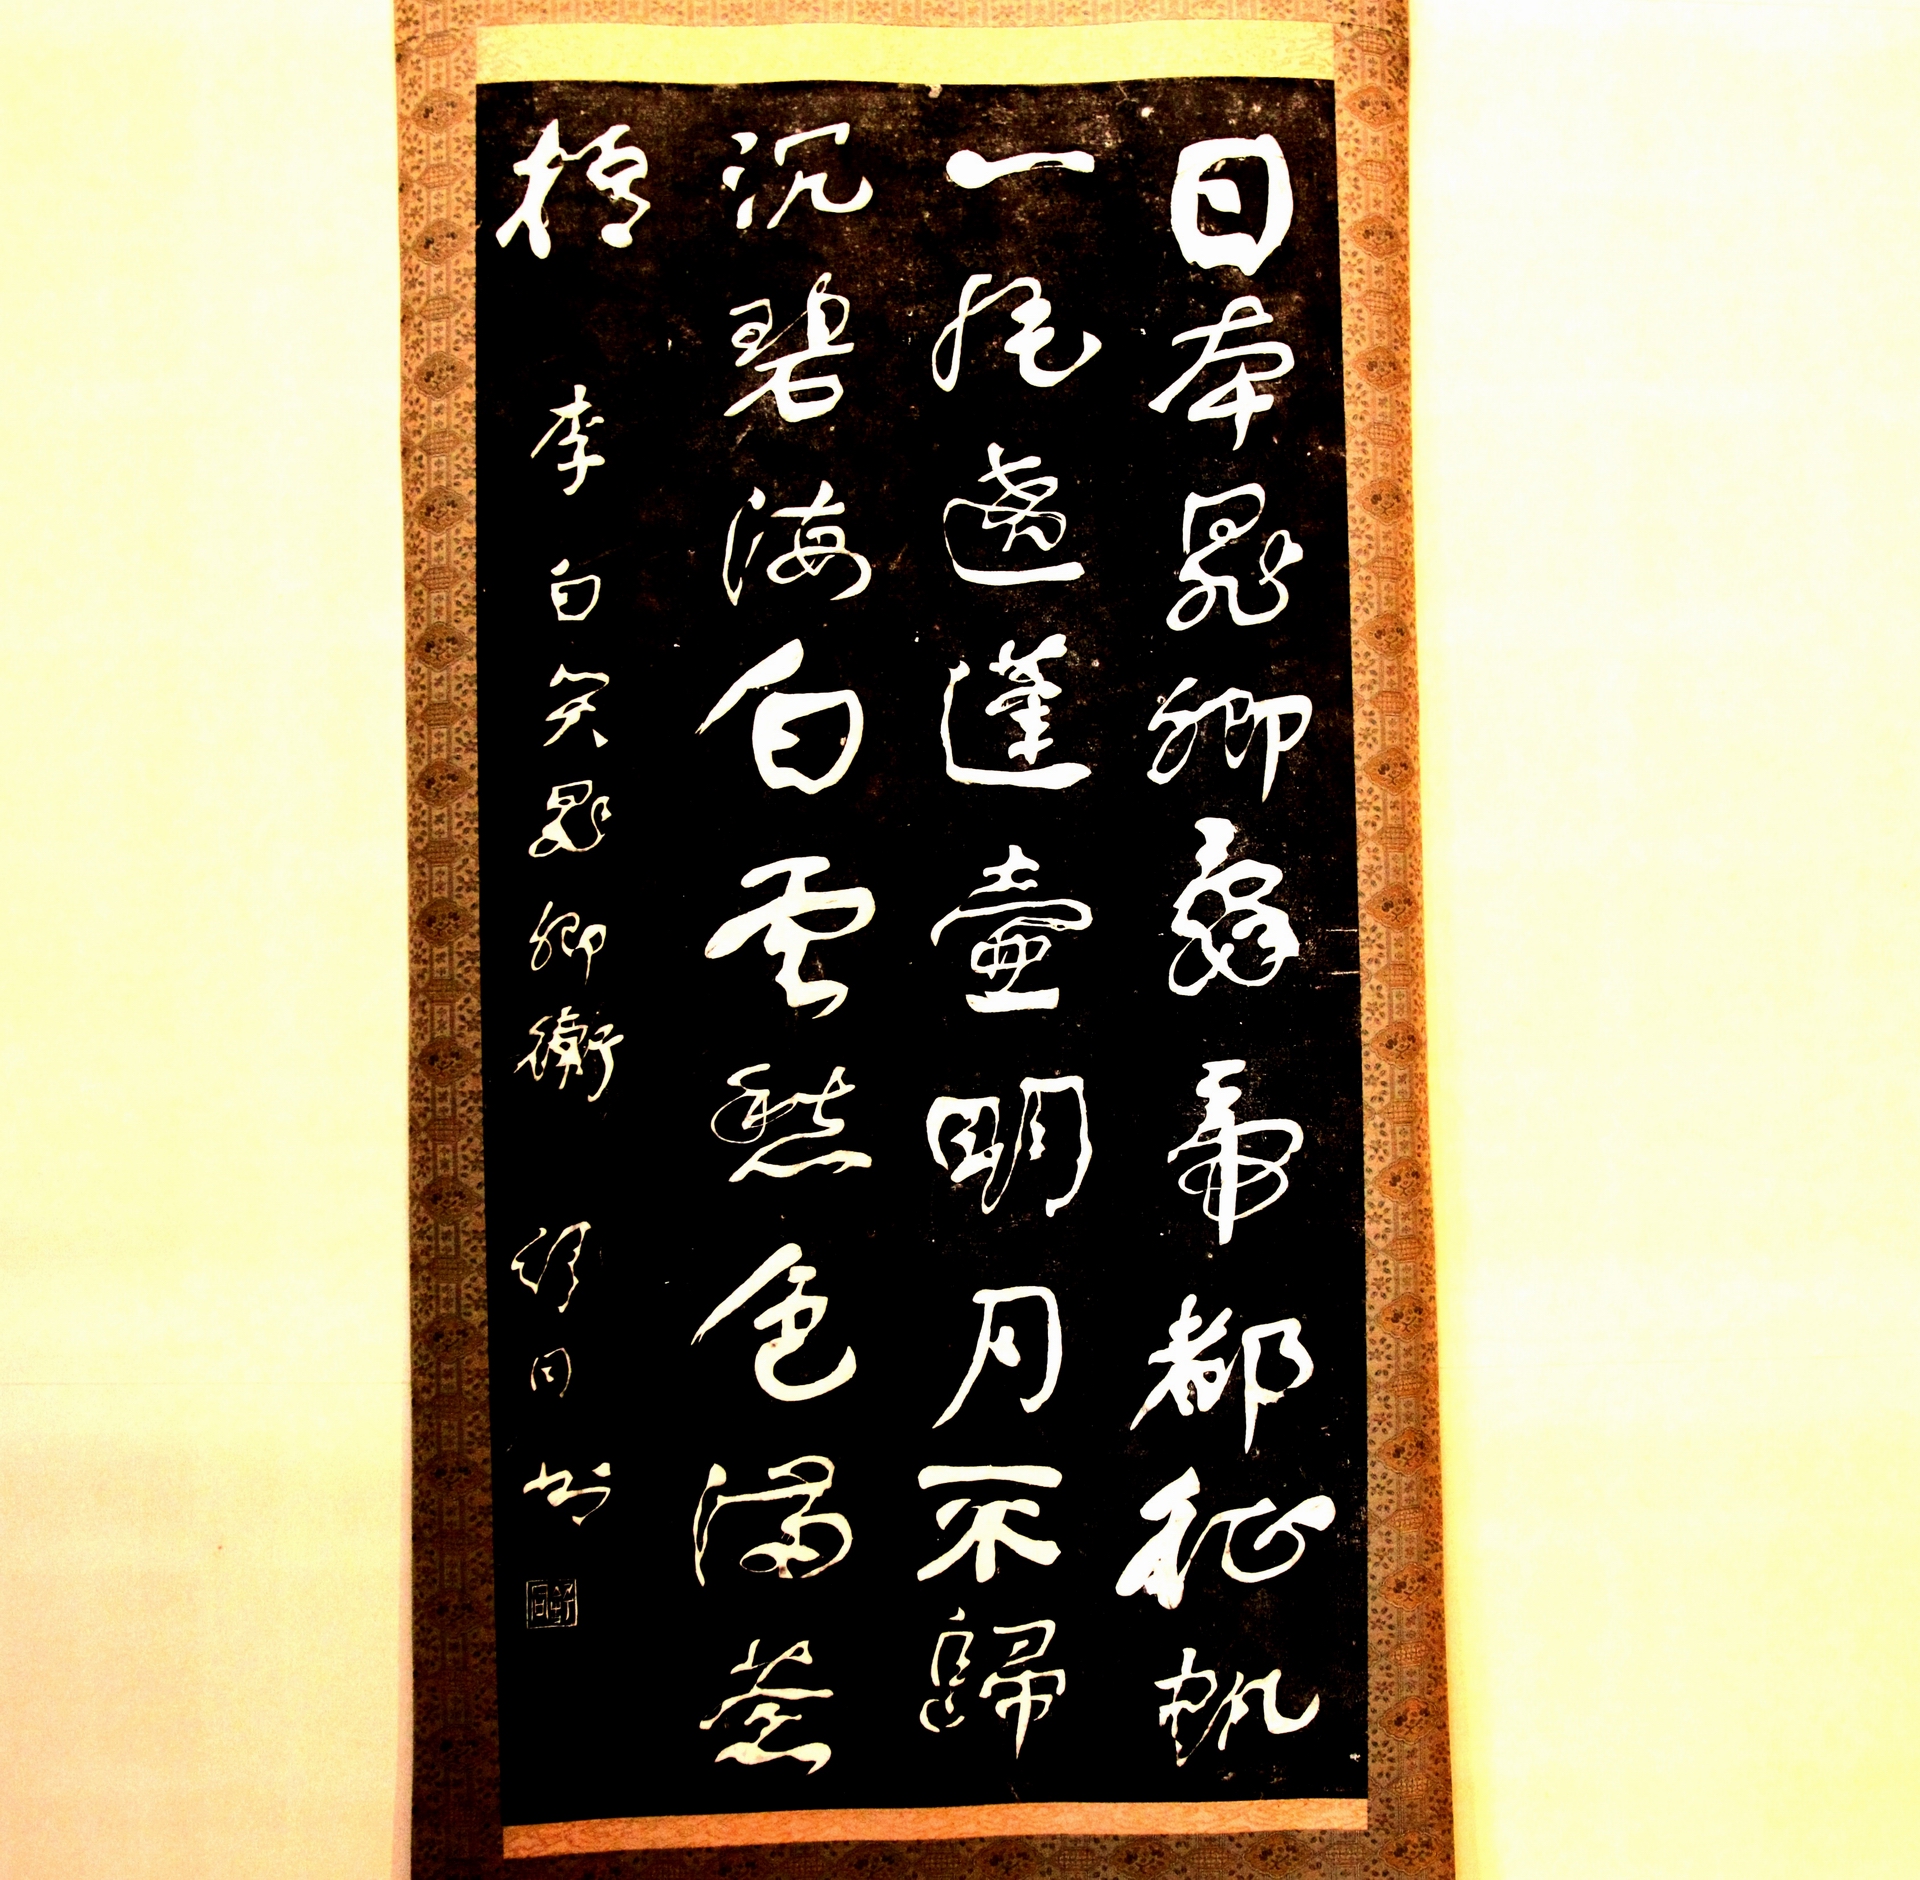 日本晁卿辭帝都征帆
一片遶蓬壺明月不歸
沉碧海白雲愁色滿蒼
梧 李白哭晁卿衡 同书